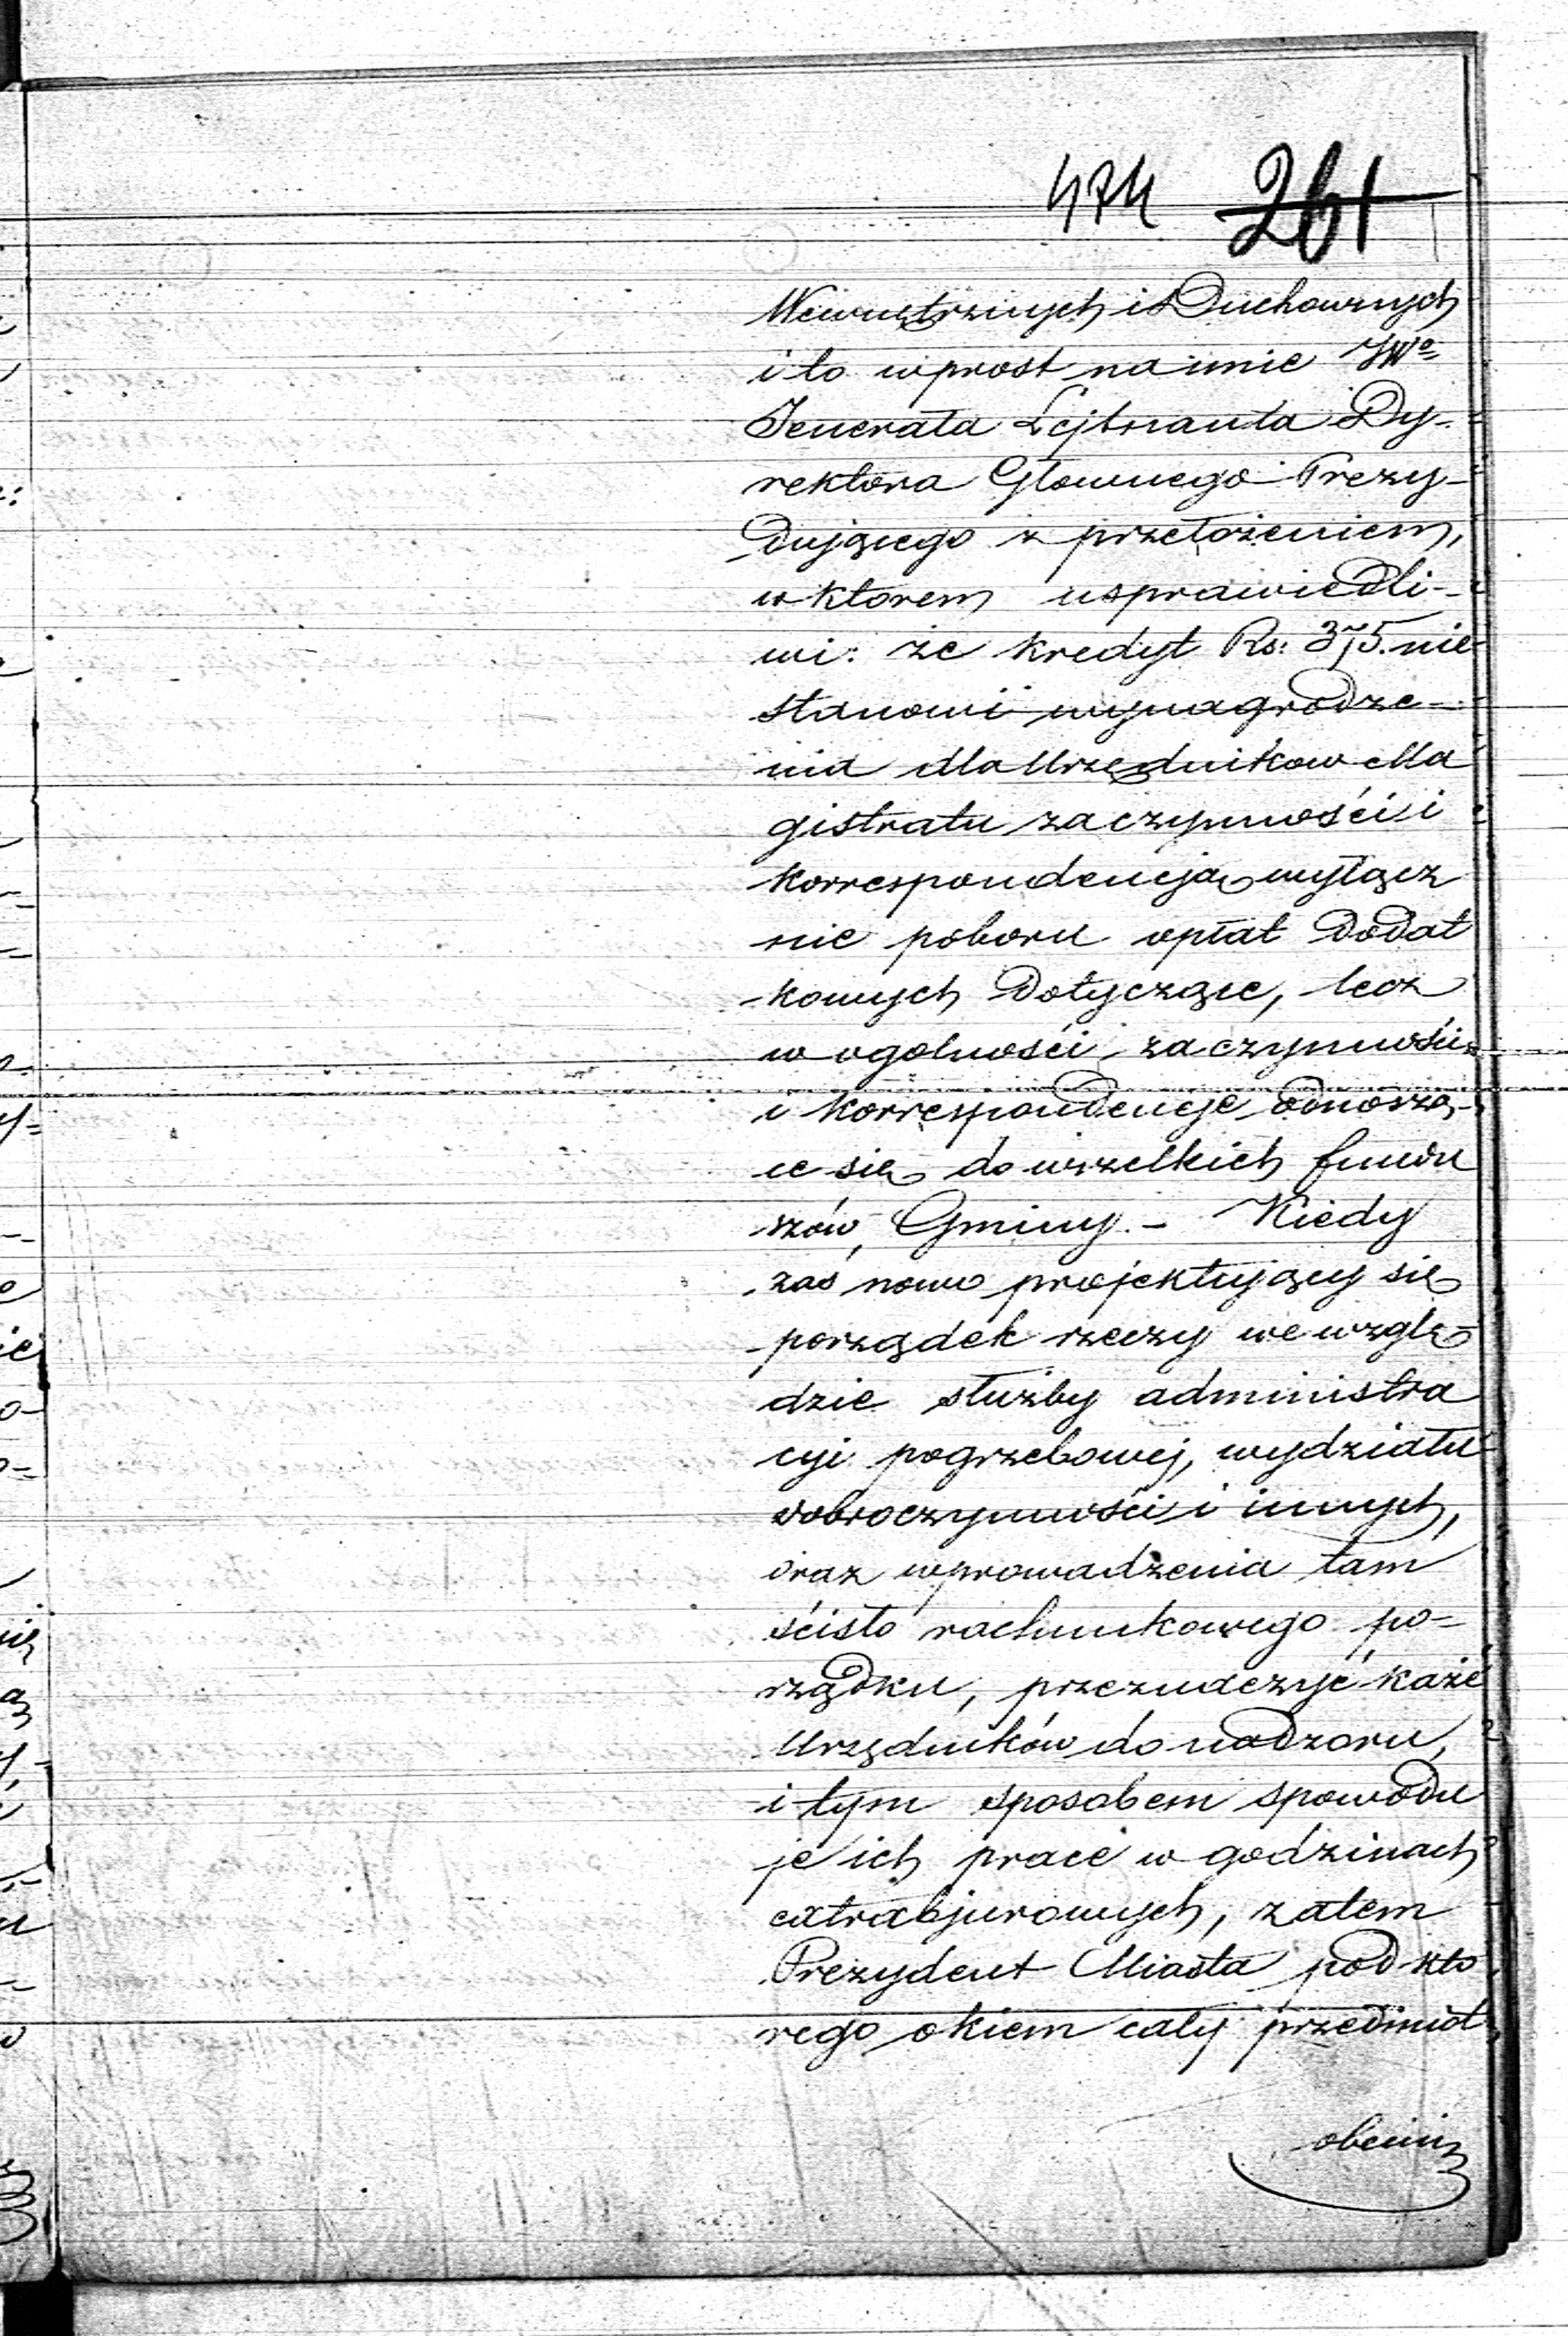 474 261
Wewnętrznych i Duchownych
i to wprost na imie JWo
Jenerała Lejtnanta Dy-
rektora Głownego Prezy-
dującego z przełożeniem,
w ktorem usprawiedli-
wi: że kredyt Rs: 375. nie
stanowi wynagrodze-
nia dla Urzędnikow Ma
gistratu za czynności i
korrespondencją wyłącz
nie poboru opłat dodat
kowych dotyczące, lecz
w ogolności za czynnośći
i korrespondencje odnoszą-
ce się do wszelkich fundu
szów Gminy. - Kiedy
zaś nowo projektujący się
porządek rzeczy we wzglę
dzie służby administra
cyi pogrzebowej, wydziału
dobroczynności i innych,
oraz wprowadzenia tam
ścisło rachunkowego po-
rządku, przeznaczyć każe
Urzędników do nadzoru,
i tym sposobem spowodu
je ich pracę w godzinach
extrabjurowych, zatem
Prezydent Miasta pod kto
rego okiem cały przedmiot